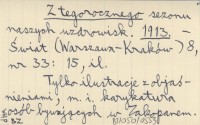 Z tegorocznego sezonu
naszych uzdrowisk. 1913. -
Świat (Warszawa-Kraków) 8,
nr 33: 15, il.
Tylko ilustracje z objaś-
nieniami, m. i. karykatura
osób bywających w Zakopanem.
BZ